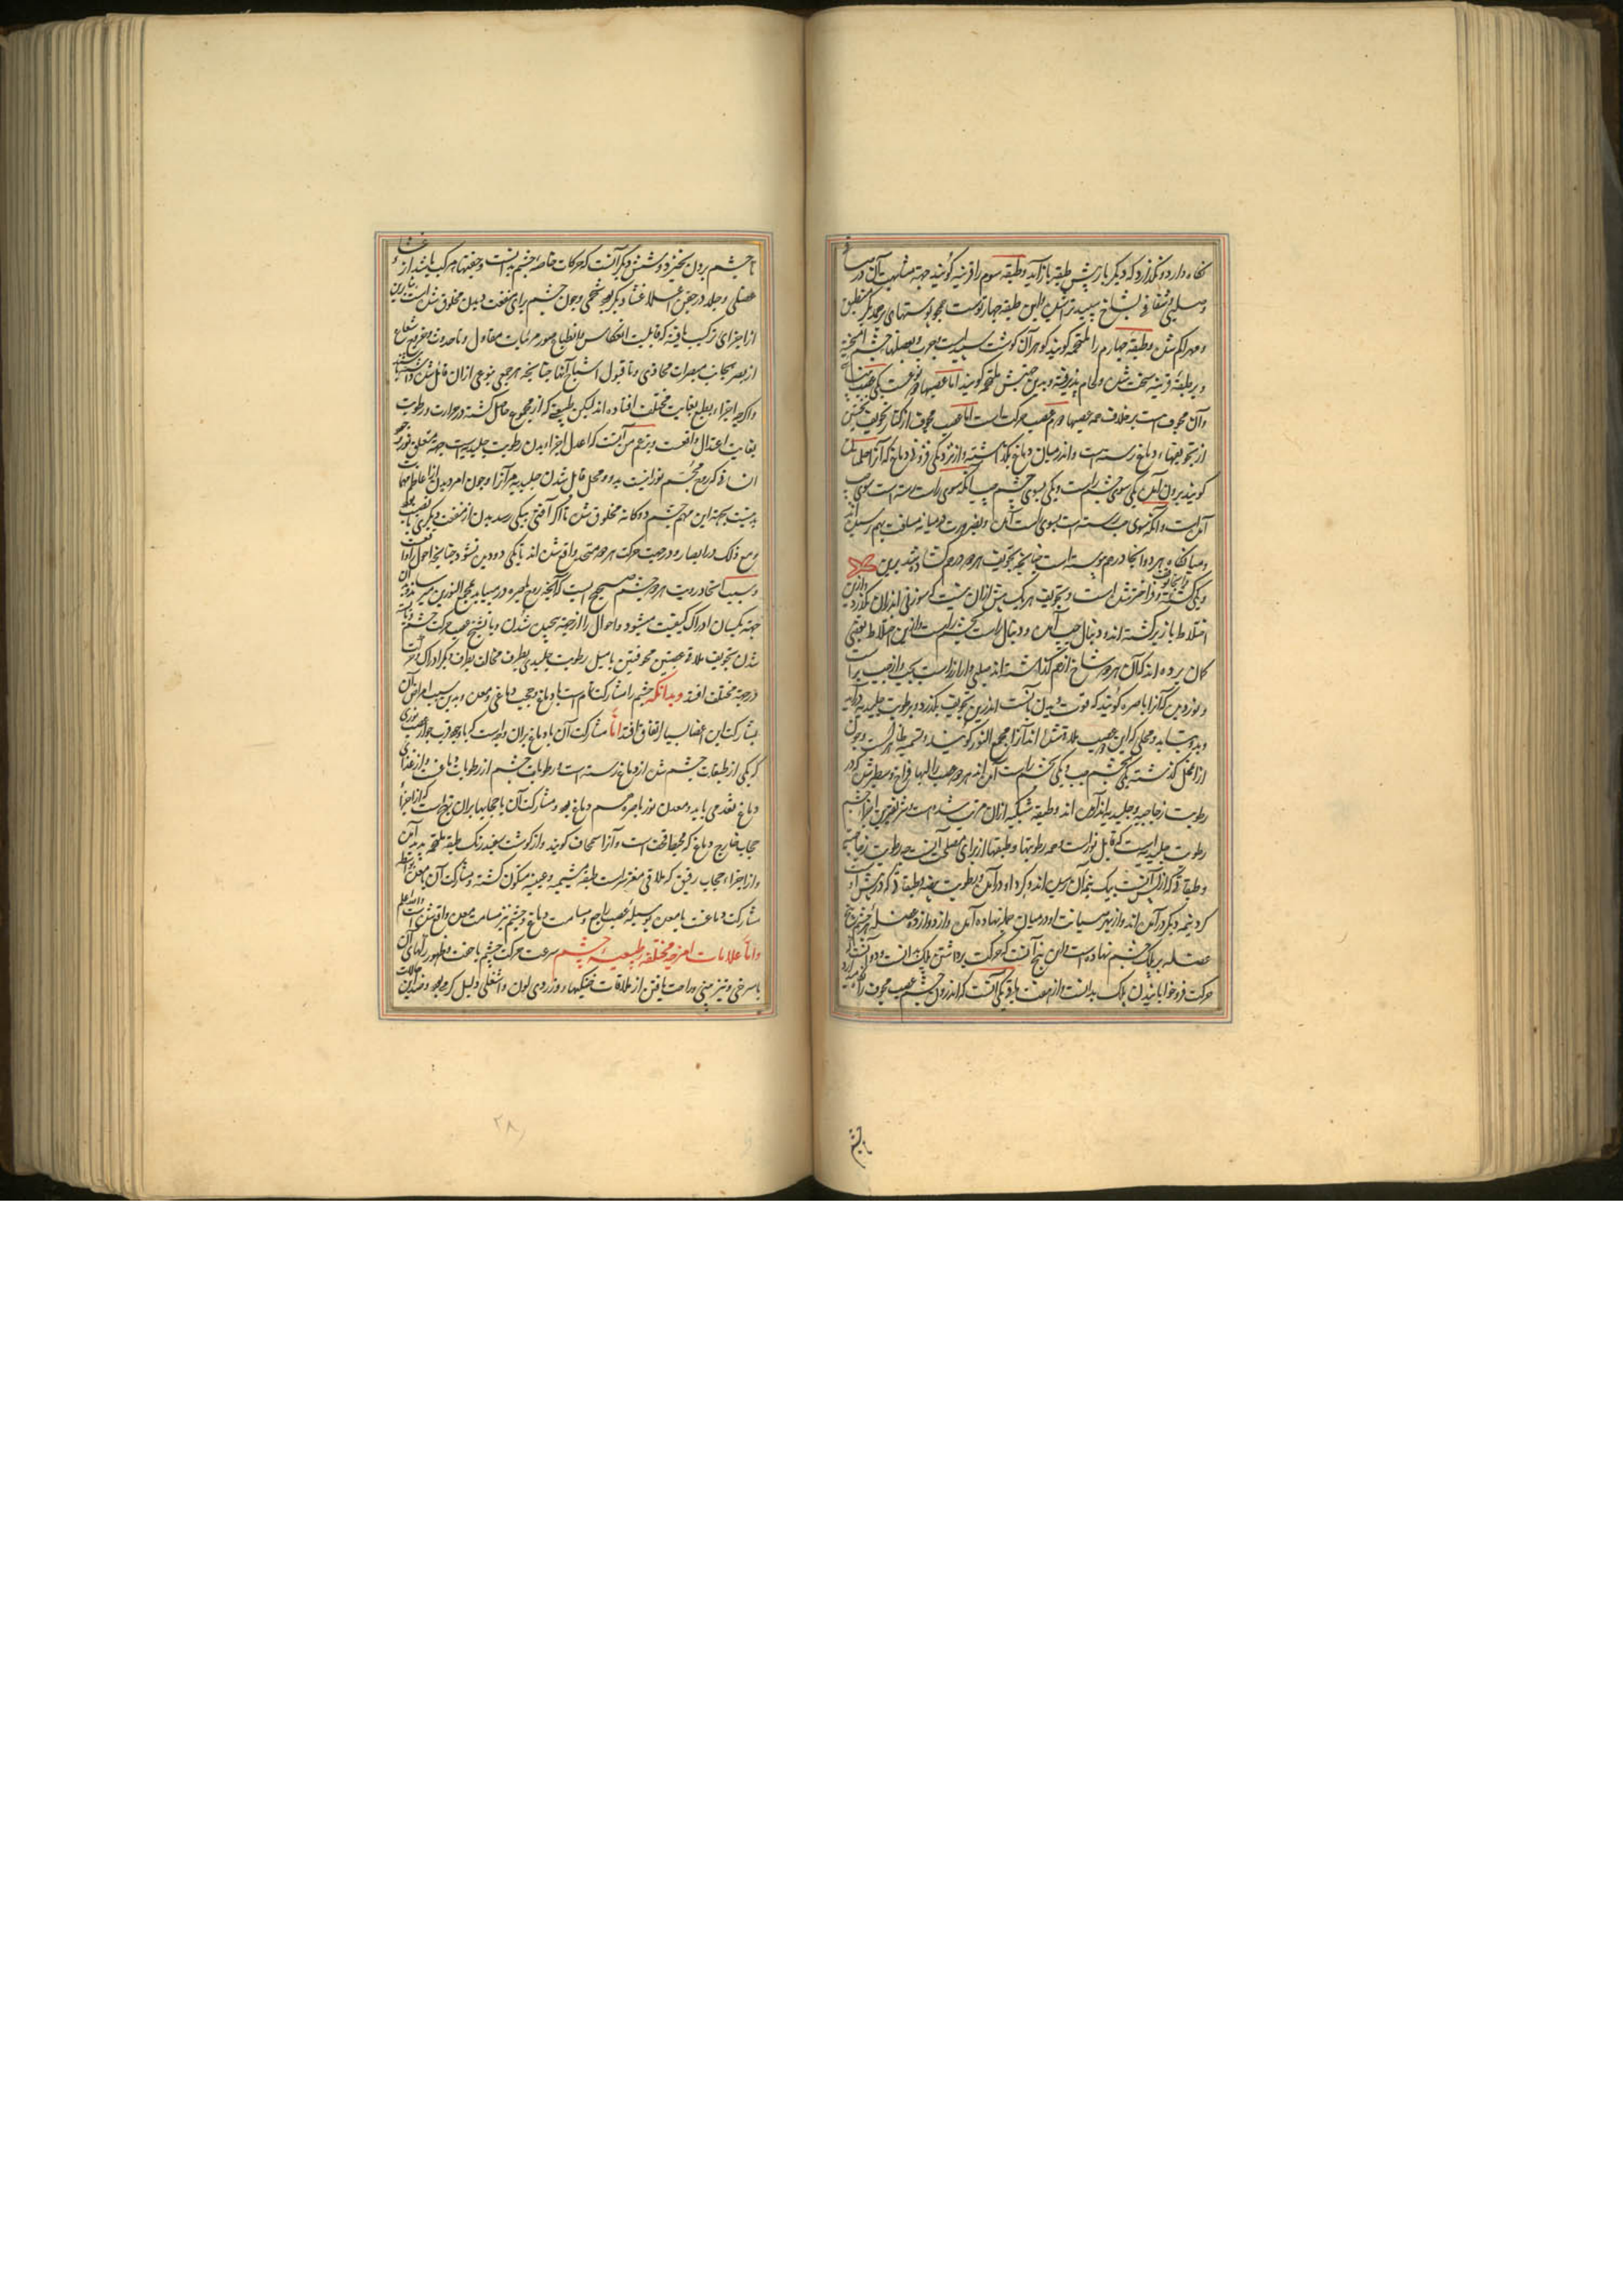 نگاه دارد و نگذارد که دیگر بار پیش طبقه باز آید و طبقه سوم را قرنیه گویند جهة مشابهت آن در
و صلبی و شفافی بشاخ سپید تراشیده و این طبقه چهار توست همچو پوستهای برهمدیگر
و طبقه چهارم را ملتحمه گویند گوهر آن گوشت سپید است چرب و بعضلهای چشم آمیخته
و بر طبقه قرنیه سخت شده و التحام پذیرفته و بدین جهتش ملتحمه گویند اما عصبها دو نوعست یکی عصب
و آن مجوف است بر خلاف همه عصبها دوم عصب حرکت است اما عصب مجوف از کنار تجویف نخستین
از تجویفهاء دماغ رسته است و اندر میان دماغ بگذاشته و از نزدیکی فزونی دماغ که آنرا حلمتان
گویند بیرون آمده یکی سوی چشم راست و یکی بسوی چشم چپ آنکه سوی راست رسته است سوی چپ
آمده است و آنکه سوی چپ رسته است بسوی راست آمده و بضرورت در میانه مسافت بهم رسیده اند
هر دو آنجا درهم پیوسته است چنانچه تجویف هر دو درهم گشاده شد برین
و یکی گشته و فراختر شده است و تجویف هر یک بیش ازان نیست که سوزنی اندران بگذرد
اختلاط باز برگشته اند و دنبال چپ آمده و دنبال راست بچشم راست و ازین اختلاط بعضی
گمان برده اند که آن هر دو شاخ از هم گذاشته اند صلیبی وار از راست بچپ و از چپ براست
و نور دیدن که آنرا باصره گویند که قوت دیدن بآنست اندرین تجویف بگذرد و برطوبت جلیدیه درآید
و محلی که این دو عصب ملاقی شده اند آنرا مجمع النور گویند و تسمیه ظاهر است و چون
ازان محل گذشته یکی بچشم چپ و یکی بچشم راست آمده اند هر دو عصب را لبها فراخ و سطبر شده که در
رطوبت زجاجیه و جلیدیه اندرآمده اند و طبقه شبکیه ازان مرتب شده است و شریفترین اجزاء چشم
رطوبت جلیدیه است که قابل نور است و همه رطوبتها و طبقتها از برای مصلحت آنست رطوبت زجاجیه
و طبقاتی که از پس آنست بیک نیمه آن رسیده اند و گرد او درآمده و رطوبت بیضیه و طبقاتی که در پیش اوست
گرد نیمه دیگر درآمده اند و از بهر صیانت او در میان جمله نهاده آمده و از دوازده عضله هر چشم پنج
عضله بر پلک چشم نهاده است و این پنج آنست که حرکت برداشتن پلک بدانست و دو آنست که
حرکت فرو خوابانیدن پلک بدانست و از هفت باقی یکی آنست که اندرون چشم عصب مجوف را نگاه میدارد
تا چشم
تا چشم برون نخیزد و شش دیگر آنست که حرکات خاصه چشم بدانست و جفنها مرکب باشد از
عضلی و جلد در جفن اعلا غشاء دیگر بود شحمی و چون چشم برای منفعت دیدن مخلوق شده است
از اجزای ترکیب یافته که قابلیت انعکاس و انطباع صور مرئیات مقابل و تا صدور و خروج شعاع
از بصر بجانب مبصرات محاذی و تا قبول اشباح آنها چنانچه هر جمعی بنوعی ازان قائل شده اند
و اگرچه اجزاء بطبع بغایت مختلف افتاده اند لیکن طبیعتی که از مجموع حاصل گشته در حرارت و رطوبت
بغایت اعتدال واقعست و بزعم من آنست که اعدل اجزاء بدن رطوبت جلیدیه است جهة تعلق نور
و چون امر دیدن از اعاظم مهمات
بدنیست بجهة این مهم چشم دوگانه مخلوق شده تا اگر آفتی بیکی رسد بدن از منفعت دیگری بی نصیب نبود
و مع ذلک در ابصار و در جهت حرکت هر دو متحد واقع شده اند تا یکی دو دیده نشود چنانچه احول را واقعست
و سبب اتحاد رویت هر دو چشم صحیح اینست که آنچه روح باصره در میباید بمجمع النورین میرساند
جهة یکسان ادراک کیفیت میشود و احوال را از جهة پیچیده شدن و یا تشنج عصب حرکت چشم
شدن تجویف ملاقی عصبتین مجوفتین یا میل رطوبت جلیدی بطرف مخالف بطرف دیگر ادراک
در جهة مختلف افتد و بدانکه چشم را مشارکت تام است با دماغ و حجب دماغی و معده و بدین سبب امراض آن
بمشارکت این اعضا بسیار اتفاق افتد اما مشارکت آن با دماغ بران وجه است که با وجود قرب جوار عصب نوری
که یکی از طبقات چشم شده از دماغ رسته است و رطوبات چشم از رطوبات دماغست و از غذای
دماغ تغذی می یابد و معدن نور باصره هم دماغ بود و مشارکت آن با حجابها بران نوع است که از اجزاء
حجاب خارج دماغ که محیط قحف است و آنرا سمحاق گویند و از گوشت سفید رنگ طبقه ملتحمه پدید آمده
و از اجزاء حجاب رقیق که ملاقی مغز است طبقه مشیمیه و عنبیه متکون گشته و مشارکت آن با معده بتوسط
مشارکت دماغست با معده بوسیله عصب راجع و مسامت دماغ و چشم نیز مسامت معده واقع شده است والله اعلم
و اما علامات امزجه مختلفه طبیعیه چشم سرعت حرکت چشم با خفت و ظهور رگهای آن
با سرخی و تیز بینی و راحت یافتن از ملاقات خنکیها و زردی لون و اشعلی دلیل گرمی بود و ضد این حالات
۲۸